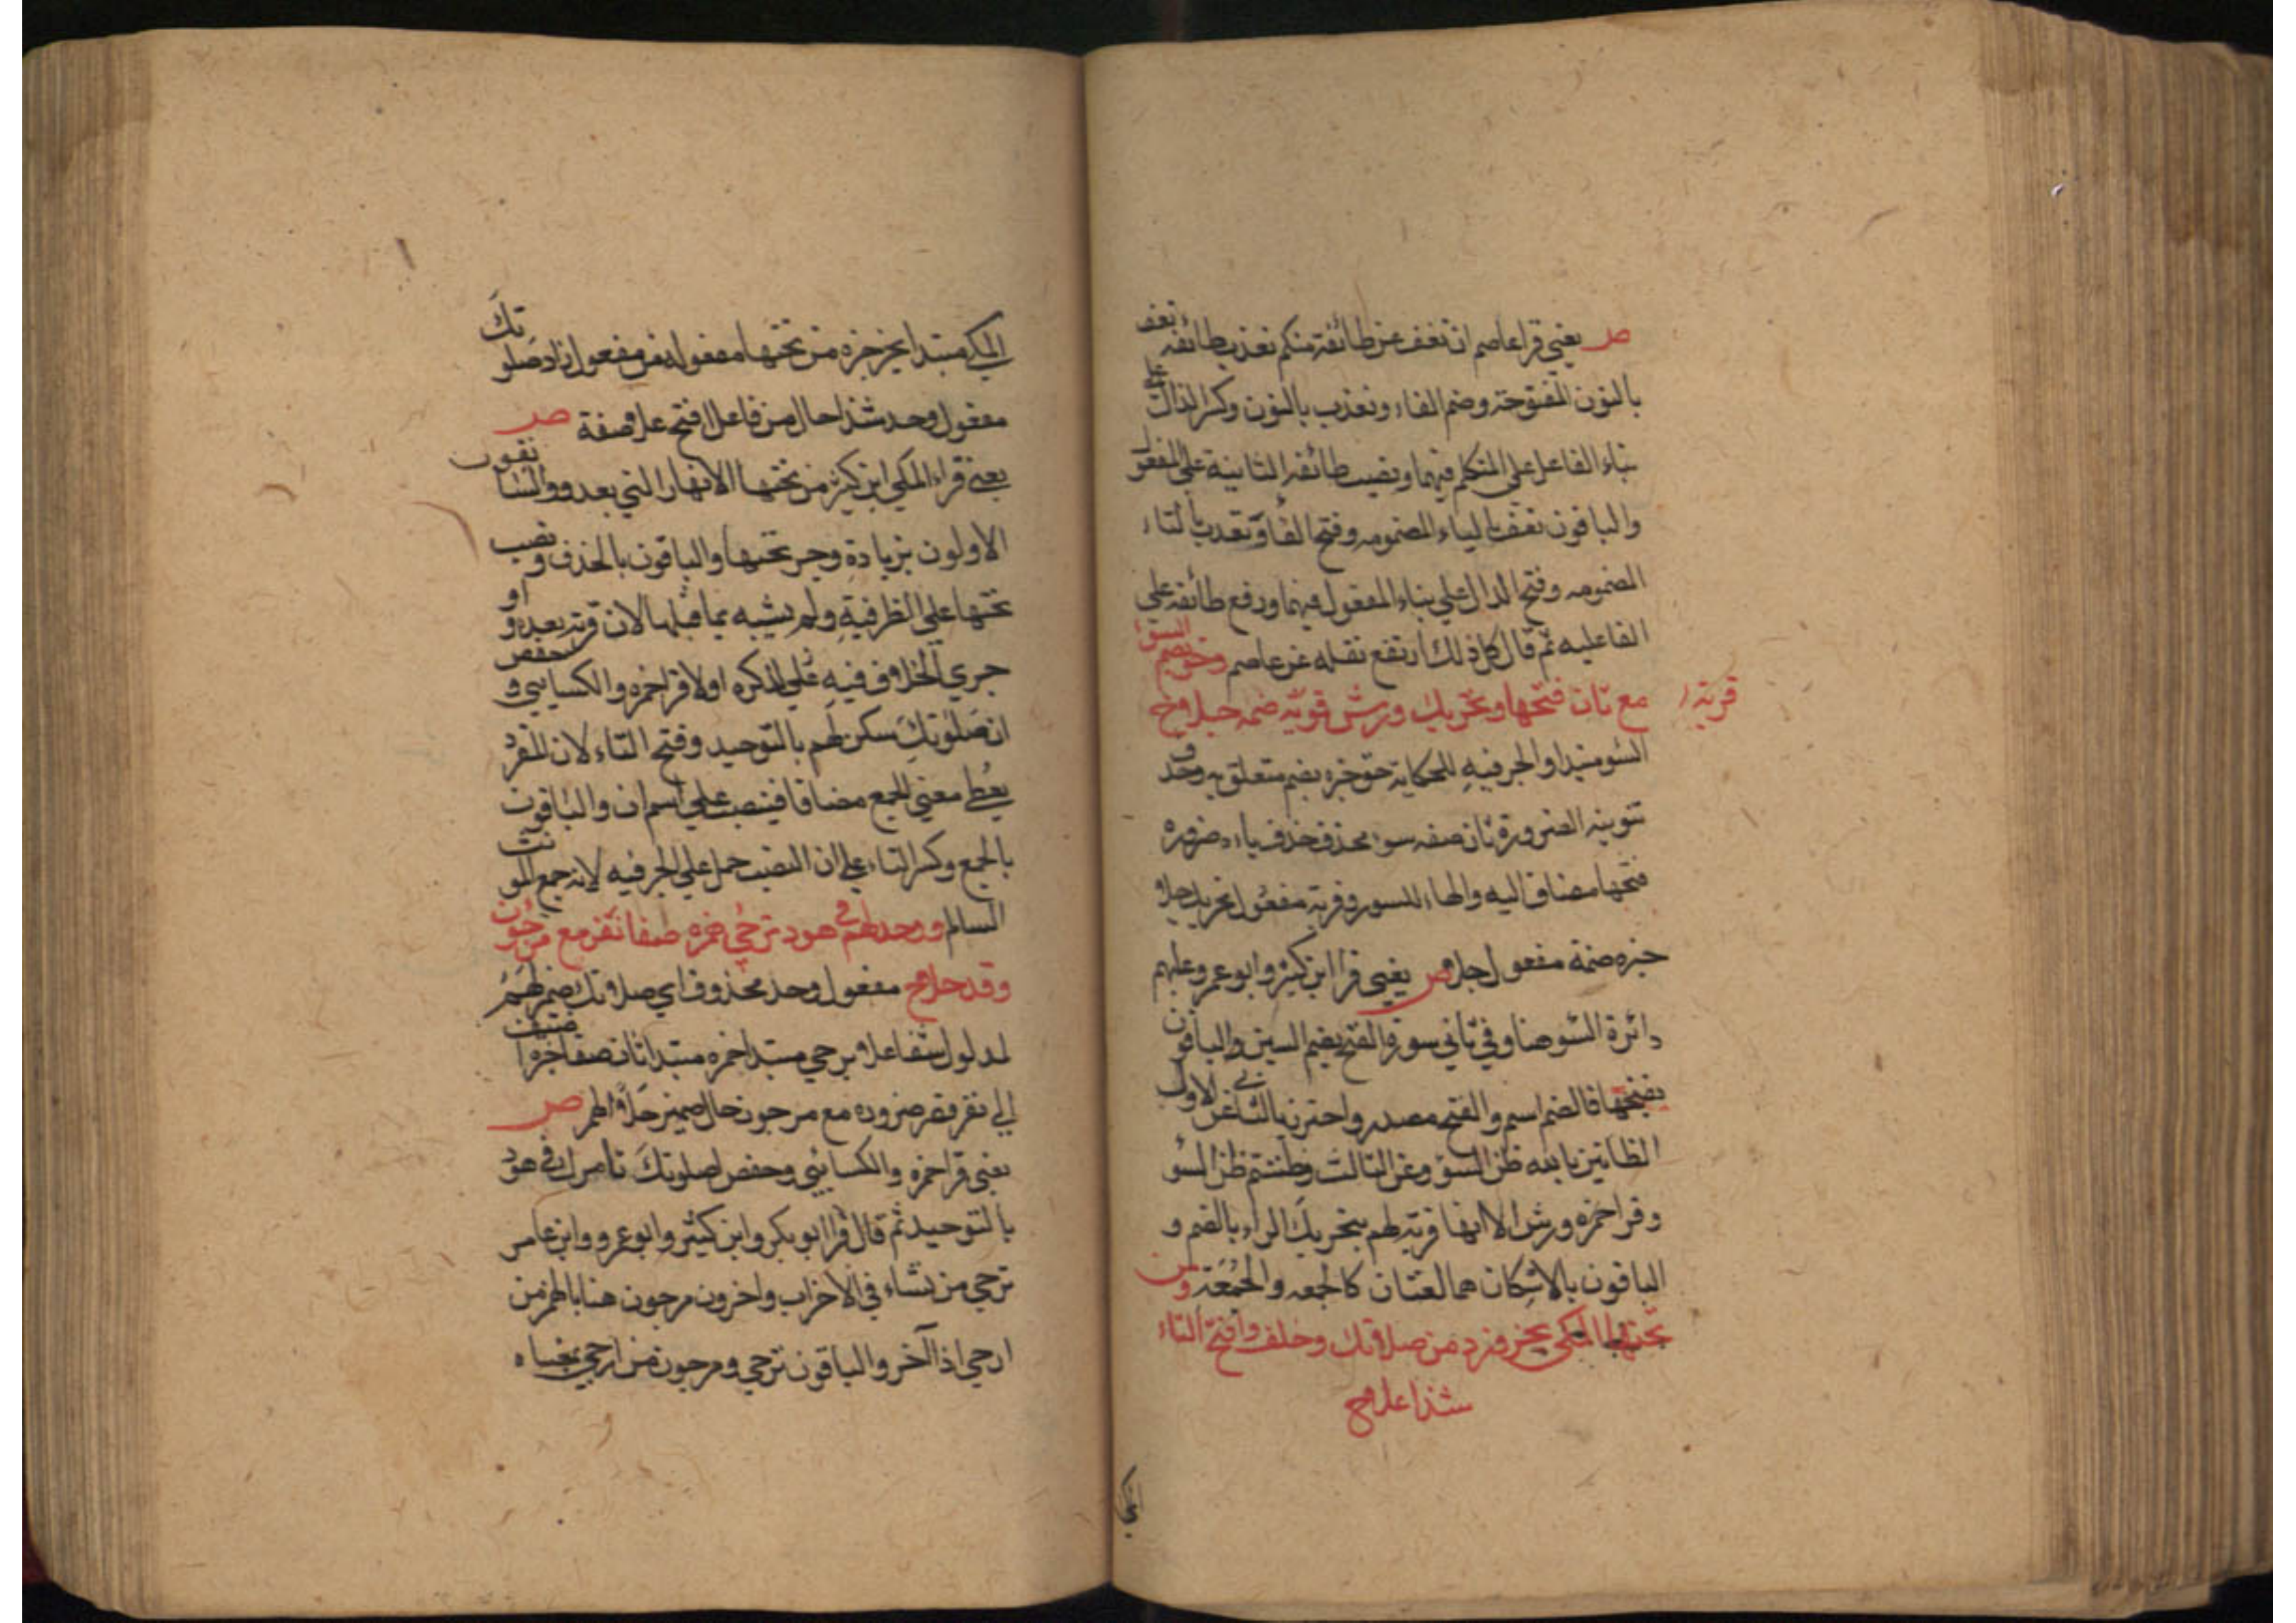 ص يعني قرا عاصم ان نعف عن طائفة منكم نعذب طائفة نعف
بالنون المفتوحة وضم الفاء ونعذب بالنون وكسر الذال علي
بناء الفاعل علي المتكلم فيهما ونصب طائفه الثانية علي المفعول
والباقون نعف بالياء المضمومه وفتح الفا وتعذب بالتاء
المضمومه وفتح الذال علي بناء المفعول فيهما ورفع طائفه علي
الفاعليه ثم قال كل ذلك ارتفع نقله عن عاصم وحق بضم السوء
مع ثان فتحها وتحريك ورش قربة ضمه جلا وح
قربة
السو مبتدا والجر فيه للحكاية حق خبره بضم متعلق به وحذف
تنوينه الضرورة ثان صفه سوء محذف حذف ياء ه ضروره
فتحها مضاف اليه والهاء للسور وقربة مفعول تحريك جلا
خبره ضمة مفعول جلا ص يعني قرا ابن كثير وابو عمرو عليهم
دائرة السو هنا وفي ثاني سورة الفتح بضم السين والباقون
بفتحها فالضم اسم والفتح مصدر واحترز بالثاني عن الاول
الظانين بالله ظن السوء وعن الثالث وظننتم ظن السو
وقرا حمزه ورش الا انها قربة لهم بتحريك الراء بالضم و
الباقون بالاسكان هما لغتان كالجمعه والجمعة ومن
تحتها المكي يجر وزد من صلاتك وخلف وافتح التاء
شذا علا وح
المكي
المكي مبتدا يجر خبره من تحتها مفعوله من مفعول زاد صلوتك
مفعول وحد شذا حال من فاعل افتح علا صفة ص
يعني قراء المكي ابن كثير من تحتها الانهار التي بعد والسابقون
الاولون بزيادة وجر تحتها والباقون بالحذف ونصب
تحتها علي الظرفية ولم يشبه بما قبلها لان قربة بعده او
جري الخلاف فيه علي الذكره اولا قرا حمزه والكسايي وحفص
ان صلوتك سكن لهم بالتوحيد وفتح التاء لان المفرد
يعطي معني الجمع مضافا فينصب علي اسم ان والباقون
بالجمع وكسر التاء علي ان النصب حمل علي الجر فيه لانه جمع المونث
السالم ووحد لهم في هود ترجي همزه صفا نفر مع مرجون
وقد حلا ح مفعول وحد محذوف اي صلاتك بضم لهم
لمدلول شفا علا ترجي مبتدا همزه مبتدا ثان صفا خبره اضيف
الي نفر قصر ضروره مع مرجون حال ضمير حلا والهمز ص
يعني قرا حمزه والكسائي وحفص اصلوتك تامرك في هود
بالتوحيد ثم قال قرا ابو بكر وابن كثير وابو عمرو وابن عامر
ترجي من تشاء في الاحزاب واخرون مرجون هنا بالهمز من
ارجي اذا آخر والباقون ترجي ومرجون من ارجي بغير ياه